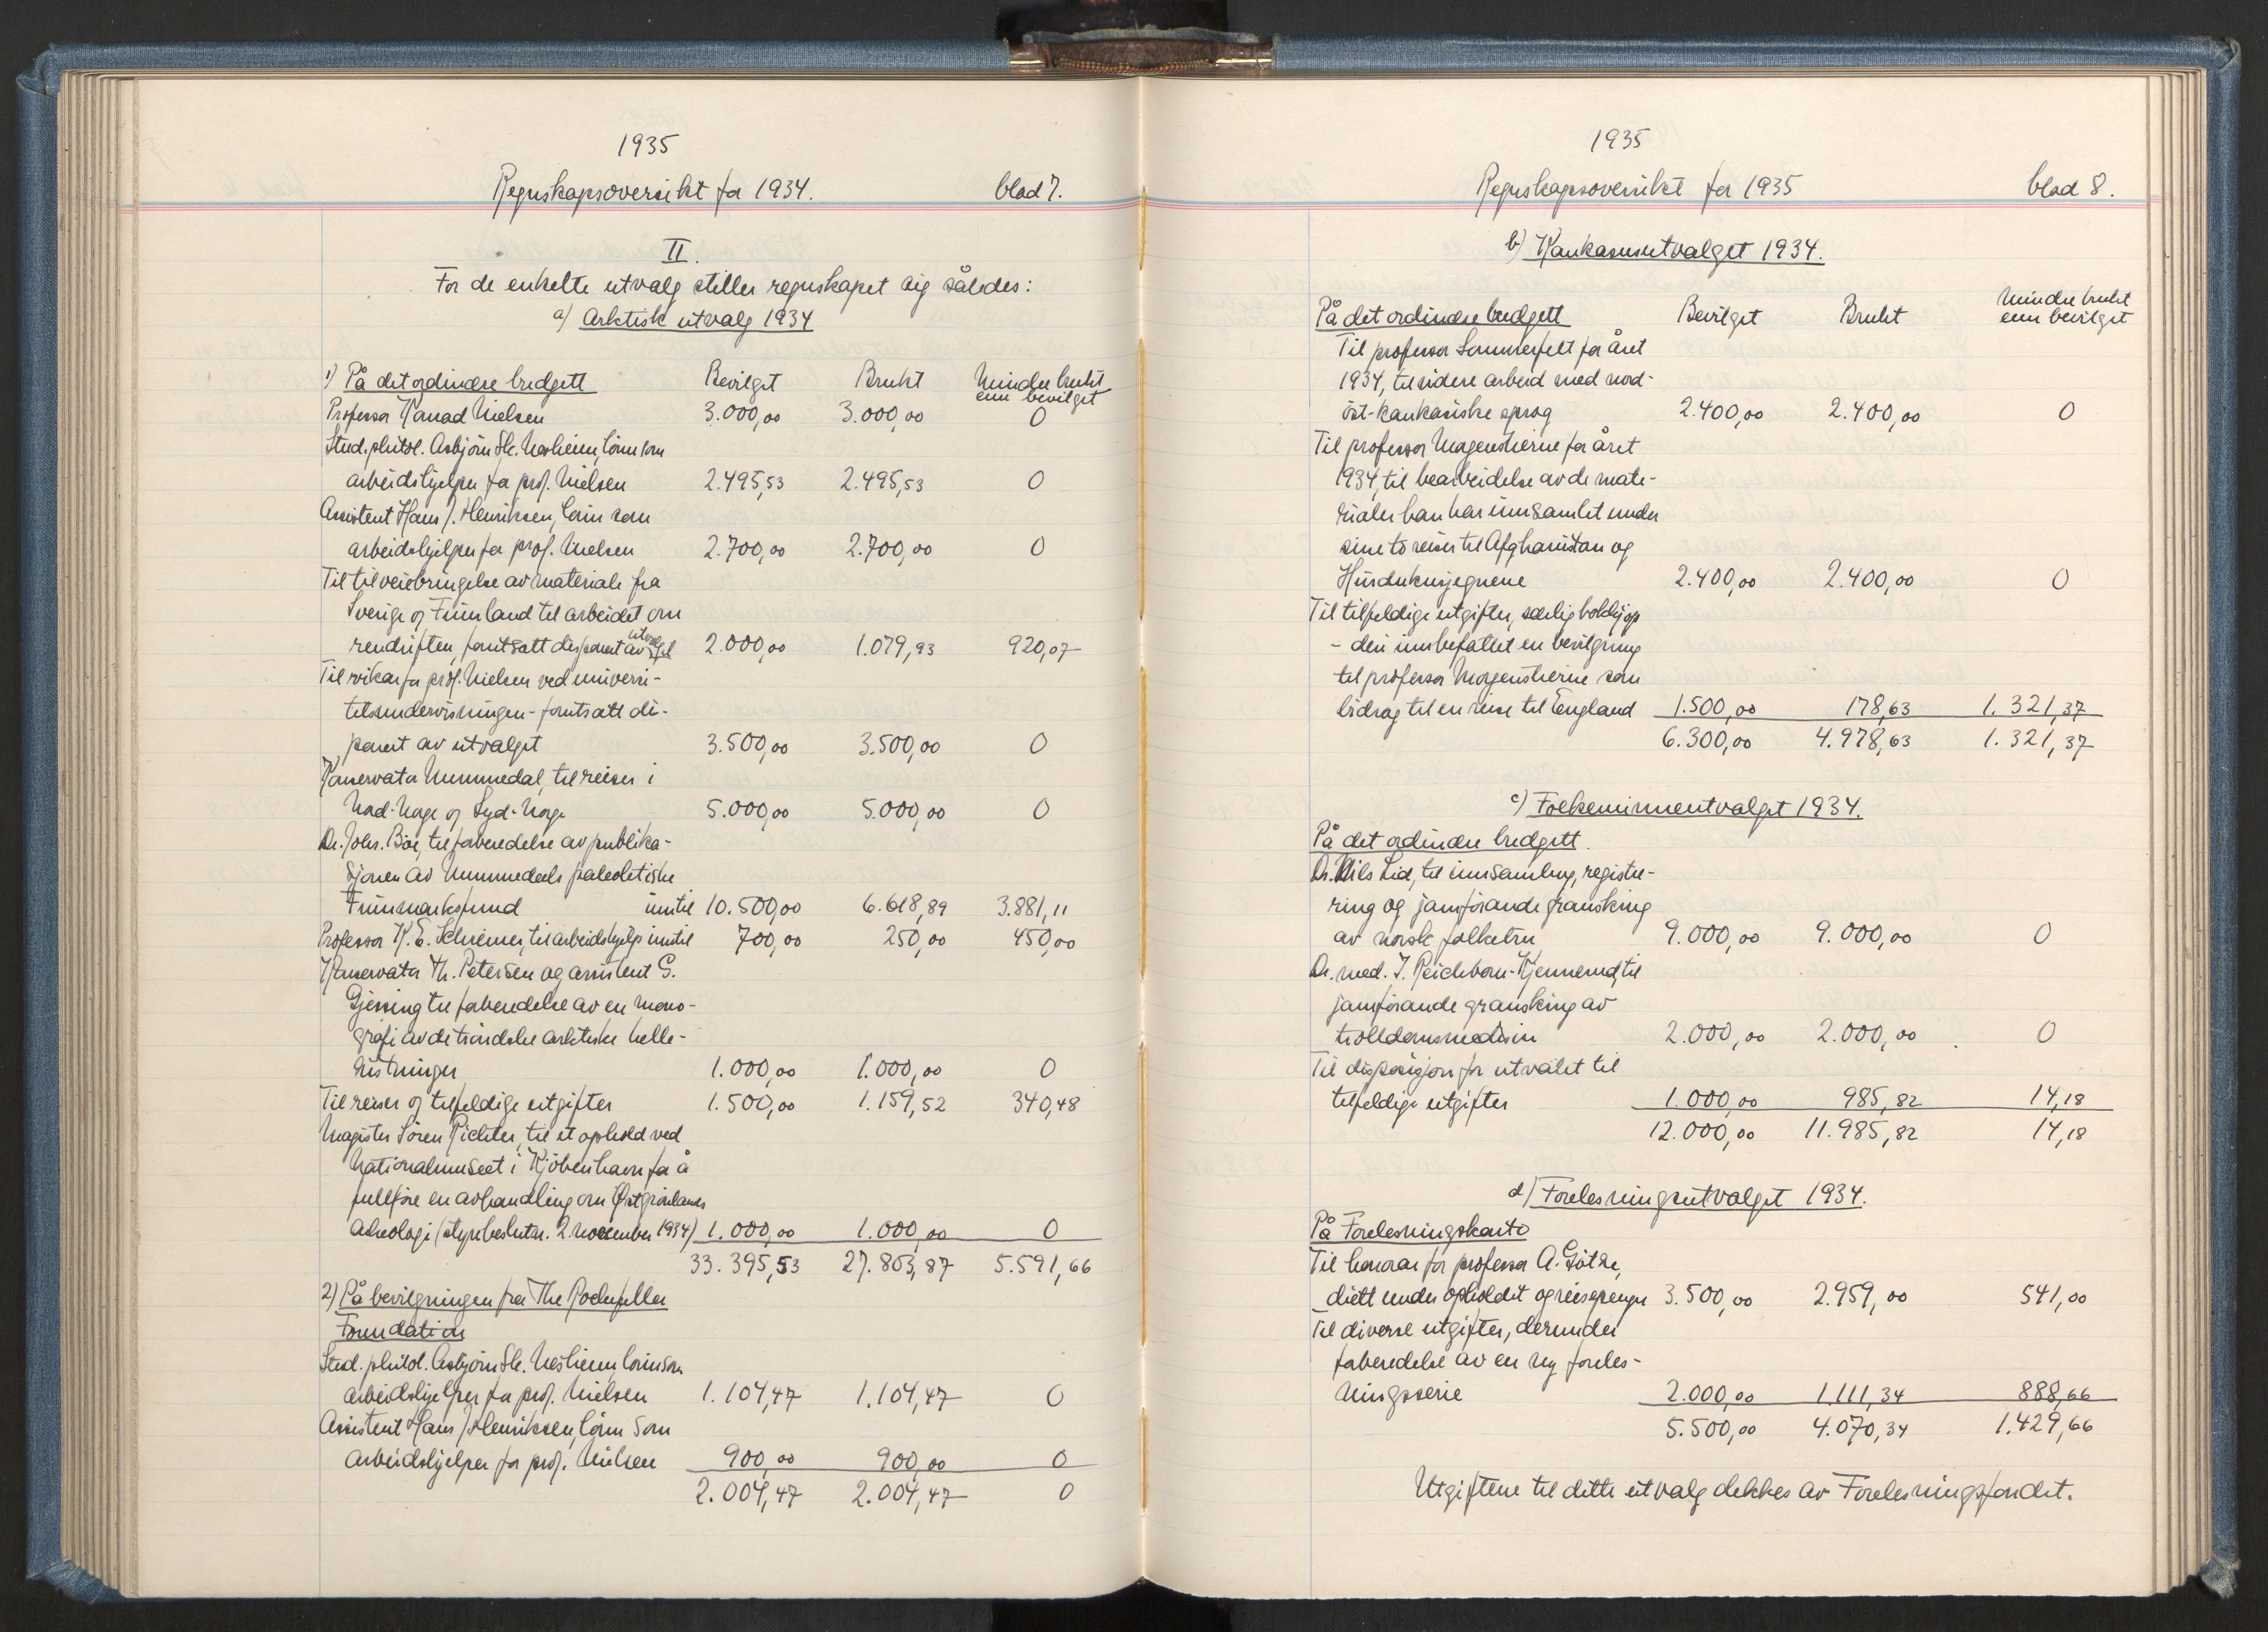 1935
Regnskapsoversikt for 1934. blad 7.
II.
For de enkelte utvalg stiller regnskapet sig således:
a) Arktisk utvalg 1934
1) På det ordinære budgett Bevilget Brukt Mindre brukt enn bevilget
Professor Konrad Nielsen 3.000,00 3.000,00 0
Stud. philol. Asbjörn Sk. Nesheim, lönn som
arbeidshjelper for prof. Nielsen 2.495,53 2.495,53 0
Assistent Hans J. Henriksen, lönn som
arbeidshjelper for prof. Nielsen 2.700,00 2.700,00 0
Til tilveiebringelse av materiale fra
Sverige og Finnland til arbeidet om
rendriften, forutsatt disponert av utvalget 2.000,00 1.079,93 920,07
Til vikar for prof. Nielsen ved universi-
tetsundervisningen - forutsatt dis-
ponert av utvalget 3.500,00 3.500,00 0
Konservator Nummedal, til reiser i
Nord-Norge og Syd-Norge 5.000,00 5.000,00 0
Dr. Johs. Böe, til forberedelse av publika-
sjonen av Nummedals paleolitiske
Finnmarksfund inntil 10.500,00 6.618,89 3.881,11
Professor K. E. Schreiner, til arbeidshjelp inntil 700,00 250,00 450,00
Konservator Th. Petersen og assistent G.
Gjessing til forberedelse av en mono-
grafi av de tröndelske arktiske helle-
ristninger 1.000,00 1.000,00 0
Til reiser og tilfeldige utgifter 1.500,00 1.159,52 340,48
Magister Sören Richter, til et ophold ved
Nationalmuseet i Kjöbenhavn for å
fullföre en avhandling om Østgrönlands
arkeologi (styrebeslutn. 2. november 1934) 1.000,00 1.000,00 0
33.395,53 27.803,87 5.591,66
2) På bevilgningen fra The Rockefeller
Foundation
Stud. philol. Asbjörn Sk. Nesheim, lönn som
arbeidshjelper for prof. Nielsen 1.104,47 1.104,47 0
Assistent Hans J. Henriksen, lönn som
arbeidshjelper for prof. Nielsen 900,00 900,00 0
2.004,47 2.004,47 0
1935
Regnskapsoversikt for 1935 blad 8.
b) Kaukasusutvalget 1934.
På det ordinære budgett Bevilget Brukt Mindre brukt enn bevilget
Til professor Sommerfelt for året
1934, til videre arbeid med nord-
öst-kaukasiske sprog 2.400,00 2.400,00 0
Til professor Morgenstierne for året
1934, til bearbeidelse av de mate-
rialer han har innsamlet under
sine to reiser til Afghanistan og
Hindukusjegnene 2.400,00 2.400,00 0
Til tilfeldige utgifter, særlig boklig op
- deri innbefattet en bevilgning
til professor Morgenstierne som
bidrag til en reise til England 1.500,00 178,63 1.321,37
6.300,00 4.978,63 1.321,37
c) Folkeminneutvalget 1934.
På det ordinære budgett.
Dr. Nils Lid, til innsamling, registre-
ring og jamförande gransking
av norsk folketru 9.000,00 9.000,00 0
Dr. med. I. Reichborn-Kjennerud, til
jamförande gransking av
trolldomsmedisin 2.000,00 2.000,00 0
Til disposisjon for utvalet til
tilfeldige utgifter 1.000,00 985,82 14,18
12.000,00 11.985,82 14,18
d) Forelesningsutvalget 1934.
På Forelesningskonto
Til honorar for professor A. Götze,
diett under opholdet og reisepenger 3.500,00 2.959,00 541,00
Til diverse utgifter, derunder
forberedelse av en ny foreles-
ningsserie 2.000,00 1.111,34 888,66
5.500,00 4.070,34 1.429,66
Utgiftene til dette utvalg dekkes av Forelesningsfondet.